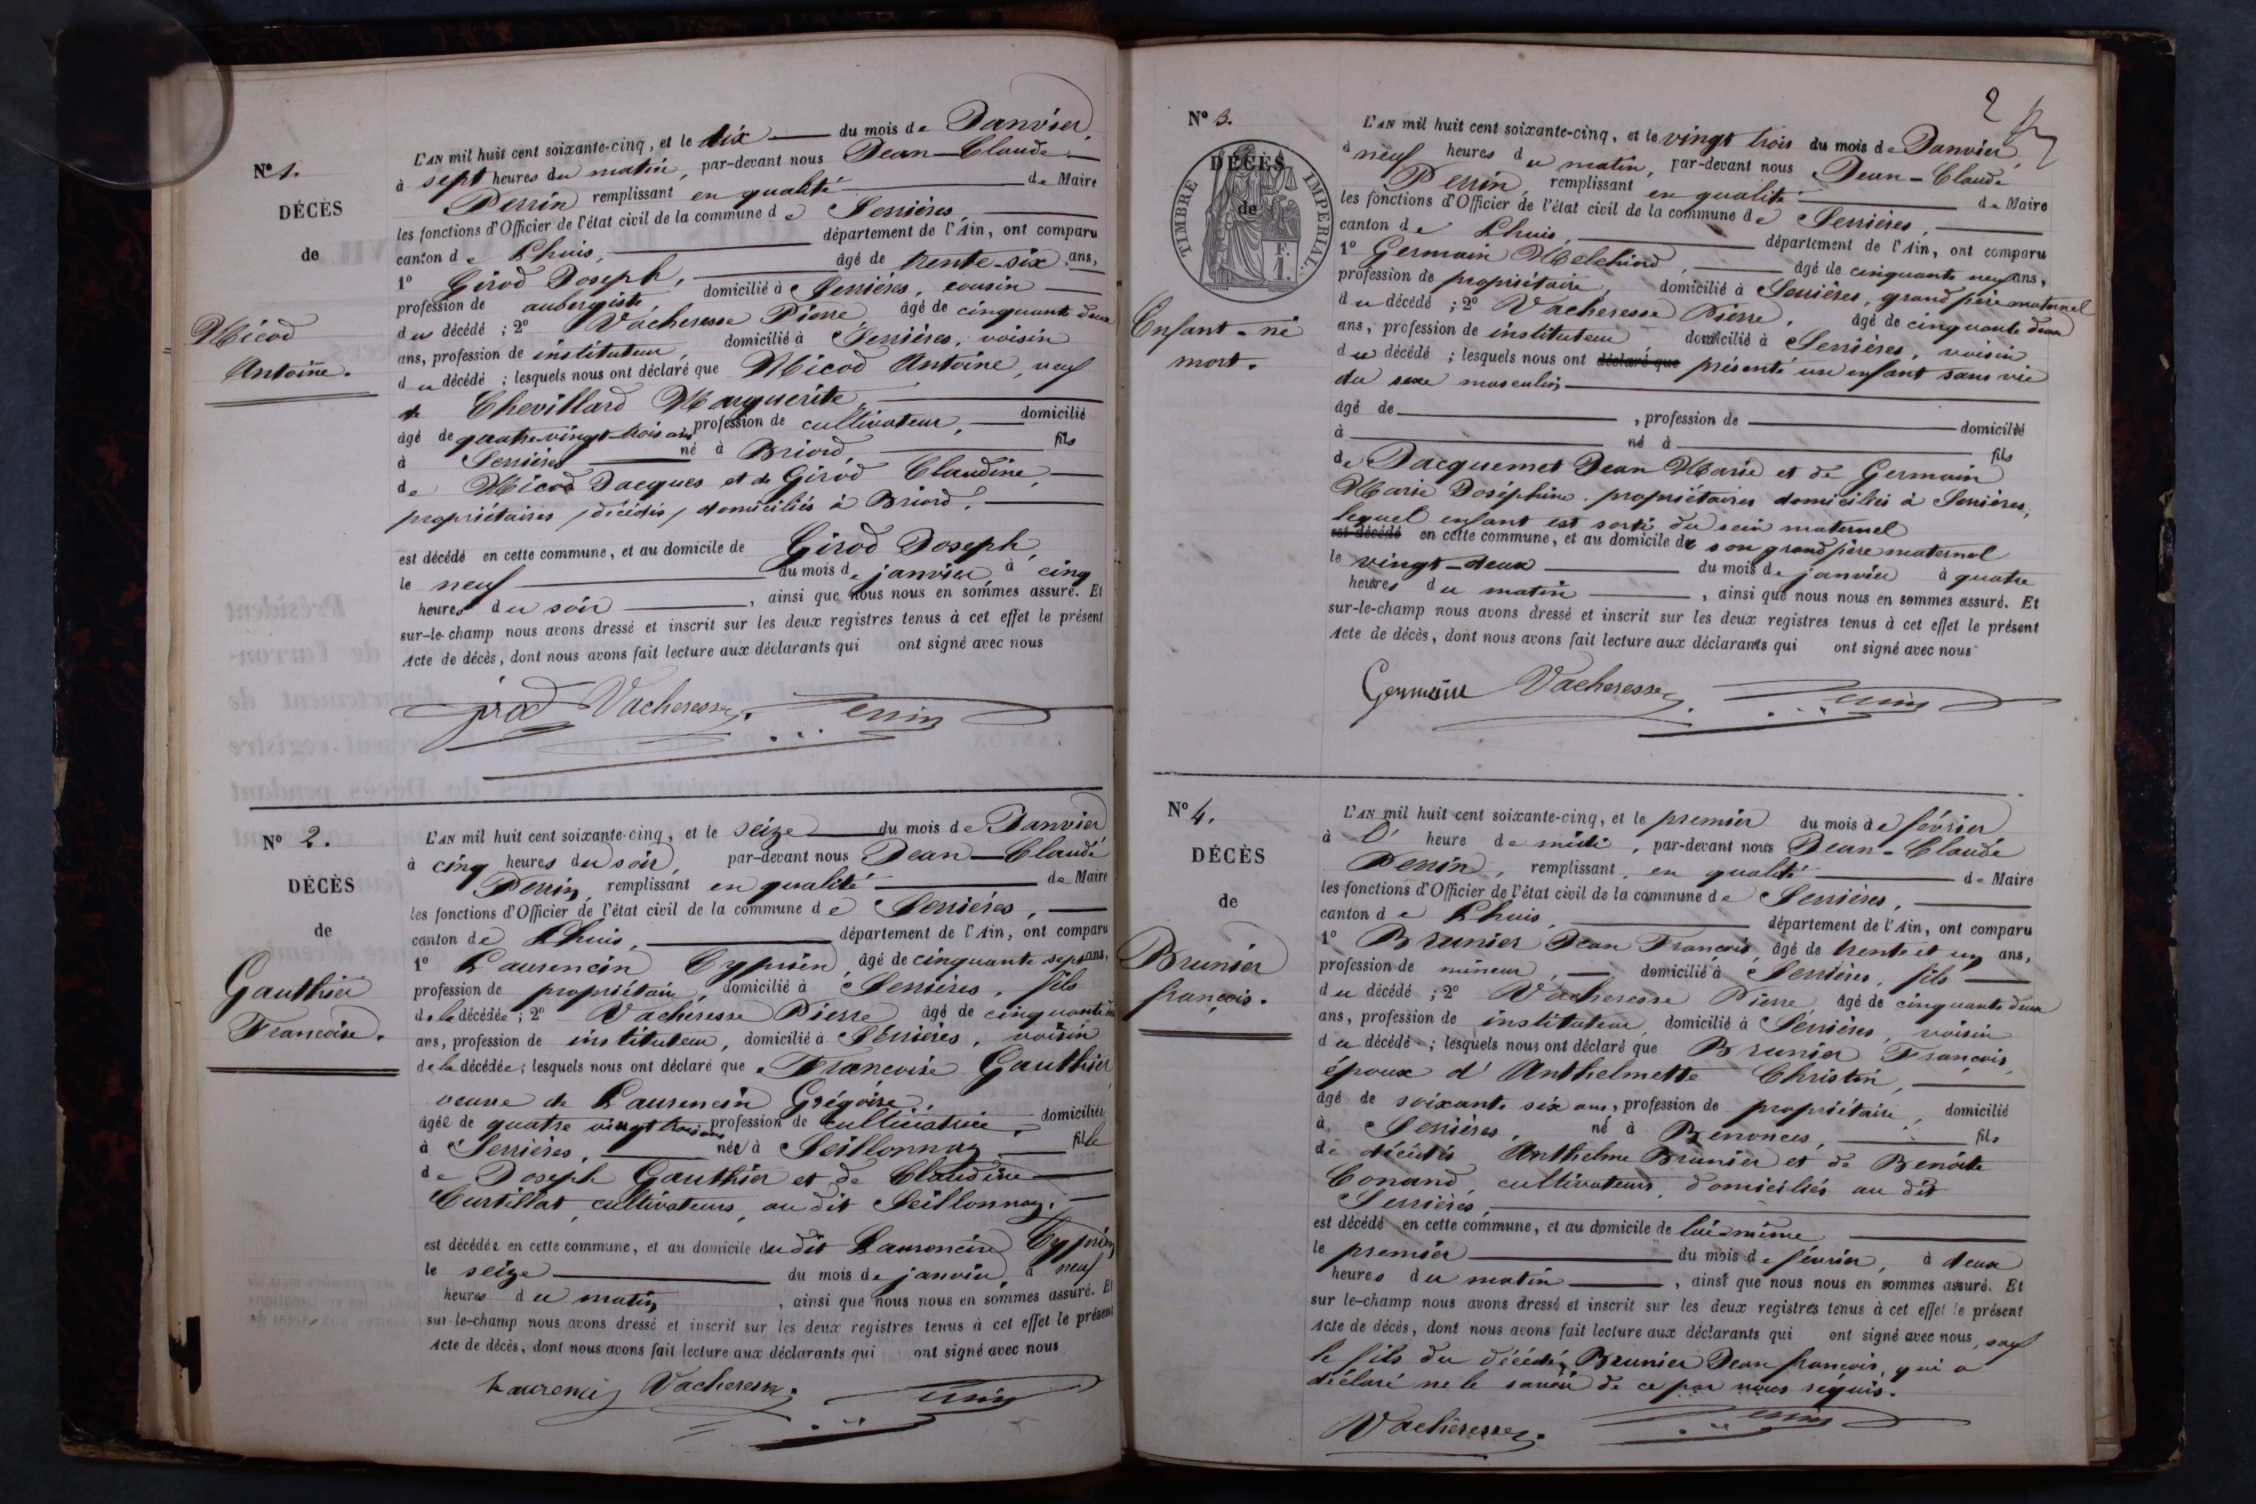 Nº 1.
DÉCÈS
de
Micod
Antoine.
L'AN mil huit cent soixante-cinq, et le dix du mois de Janvier,
à sept heures du matin, par-devant nous Jean-Claude
Perrin remplissant en qualité de Maire
les fonctions d'Officier de l'état civil de la commune de Serrières,
canton de Lhuis, département de l'Ain, ont comparu
1º Girod Joseph, âgé de trente-six ans,
profession de aubergiste, domicilié à Serrières, cousin
du décédé ; 2º Vacheresse Pierre âgé de cinquante deux
ans, profession de instituteur, domicilié à Serrières, voisin
du décédé ; lesquels nous ont déclaré que Micod Antoine, veuf
de Chevillard Marguerite,
âgé de quatre-vingt-trois ans profession de cultivateur, domicilié
à Serrières né à Briord, fils
de Micod Jacques et de Girod Claudine,
propriétaires, décédés, domiciliés à Briord,
est décédé en cette commune, et au domicile de Girod Joseph,
le neuf du mois de janvier à cinq
heures du soir, ainsi que nous nous en sommes assuré. Et
sur-le-champ nous avons dressé et inscrit sur les deux registres tenus à cet effet le présent
Acte de décès, dont nous avons fait lecture aux déclarants qui ont signé avec nous
Girod Vacheresse. Perrin
Nº 2.
DÉCÈS
de
Gauthier
Francoise.
L'AN mil huit cent soixante-cinq, et le seize du mois de Janvier
à cinq heures du soir, par-devant nous Jean-Claude
Perrin, remplissant en qualité de Maire
les fonctions d'Officier de l'état civil de la commune de Serrières,
canton de Lhuis, département de l'Ain, ont comparu
1º Laurencin Cyprien, âgé de cinquante sept ans,
profession de propriétaire, domicilié à Serrières, fils
de la décédée ; 2º Vacheresse Pierre âgé de cinquante deux
ans, profession de instituteur, domicilié à Serrières, voisin
de la décédée ; lesquels nous ont déclaré que Francoise Gauthier
veuve de Laurencin Grégoire,
âgée de quatre vingt trois ans profession de cultivatrice, domiciliée
à Serrières, née à Seillonnaz, fille
de Joseph Gauthier et de Claudine
Curtillat, cultivateurs, au dit Seillonnaz,
est décédée en cette commune, et au domicile du dit Laurencin Cyprien
le seize du mois de janvier, à neuf
heures du matin, ainsi que nous nous en sommes assuré. Et
sur-le-champ nous avons dressé et inscrit sur les deux registres tenus à cet effet le présent
Acte de décès, dont nous avons fait lecture aux déclarants qui ont signé avec nous
Laurencin Vacheresse. Perrin
2
Nº 3.
DÉCÈS
de
TIMBRE IMPÉRIAL.
F. 1.
Enfant-né
mort.
L'AN mil huit cent soixante-cinq, et le vingt trois du mois de Janvier,
à neuf heures du matin, par-devant nous Jean-Claude
Perrin, remplissant en qualité de Maire
les fonctions d'Officier de l'état civil de la commune de Serrières,
canton de Lhuis, département de l'Ain, ont comparu
1º Germain Melchiord, âgé de cinquante neuf ans,
profession de propriétaire, domicilié à Serrières, grand père maternel
du décédé ; 2º Vacheresse Pierre, âgé de cinquante deux
ans, profession de instituteur, domicilié à Serrières, voisin
du décédé ; lesquels nous ont déclaré que présenté un enfant sans vie
du sexe masculin
âgé de , profession de domicilié
à né à fils
de Jacquemet Jean Marie et de Germain
Marie Joséphine, propriétaires domiciliés à Serrières,
lequel enfant est sorti du sein maternel
est décédé en cette commune, et au domicile de son grand père maternel
le vingt-deux du mois de janvier à quatre
heures du matin, ainsi que nous nous en sommes assuré. Et
sur-le-champ nous avons dressé et inscrit sur les deux registres tenus à cet effet le présent
Acte de décès, dont nous avons fait lecture aux déclarants qui ont signé avec nous
Germain Vacheresse. Perrin
Nº 4.
DÉCÈS
de
Brunier
françois.
L'AN mil huit cent soixante-cinq, et le premier du mois de février
à l' heure de midi, par-devant nous Jean-Claude
Perrin, remplissant en qualité de Maire
les fonctions d'Officier de l'état civil de la commune de Serrières,
canton de Lhuis, département de l'Ain, ont comparu
1º Brunier Jean François, âgé de trente et un ans,
profession de mineur, domicilié à Serrières, fils
du décédé ; 2º Vacheresse Pierre âgé de cinquante deux
ans, profession de instituteur domicilié à Serrières, voisin
du décédé ; lesquels nous ont déclaré que Brunier François,
époux d'Anthelmette Christin,
âgé de soixante six ans, profession de propriétaire, domicilié
à Serrières, né à Benonces, fils
de décédés Anthelme Brunier et de Benoite
Conand, cultivateurs, domiciliés au dit
Serrières,
est décédé en cette commune, et au domicile de lui-même
le premier du mois de février, à deux
heures du matin, ainsi que nous nous en sommes assuré. Et
sur le-champ nous avons dressé et inscrit sur les deux registres tenus à cet effet le présent
Acte de décès, dont nous avons fait lecture aux déclarants qui ont signé avec nous, sauf
le fils du décédé, Brunier Jean françois, qui a
déclaré ne le savoir de ce par nous réquis.
Vacheresse. Perrin